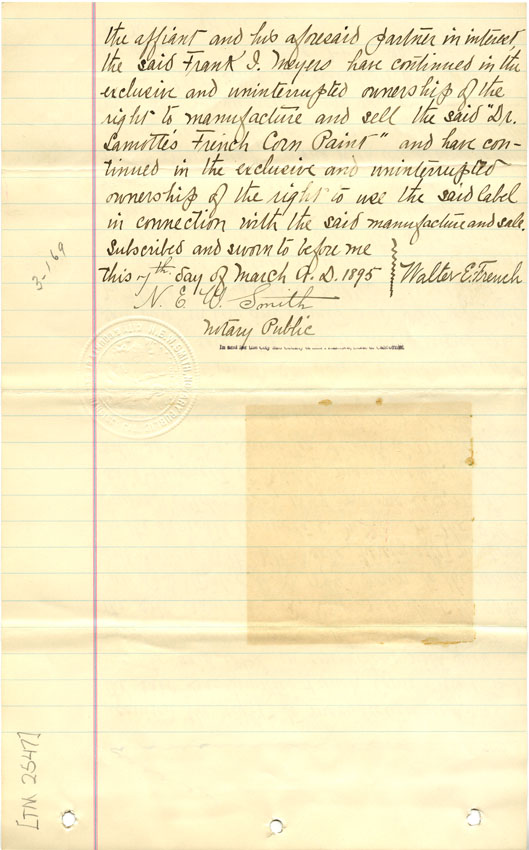 the affiant and his aforesaid partner in interest,
the said Frank I. Meyers have continued in the
exclusive and uninterrupted ownership of the
right to manufacture and sell the said "Dr.
Lamotte's French Corn Paint" and have con-
tinued in the exclusive and uninterrupted
ownership of the right to use the said label
in connection with the said manufacture and sale.
Subscribed and sworn to before me
this 7th day of March A.D. 1895
Walter E. French
N. E. W. Smith
Notary Public
In and for the City and County of
3-169
[TM 2547]